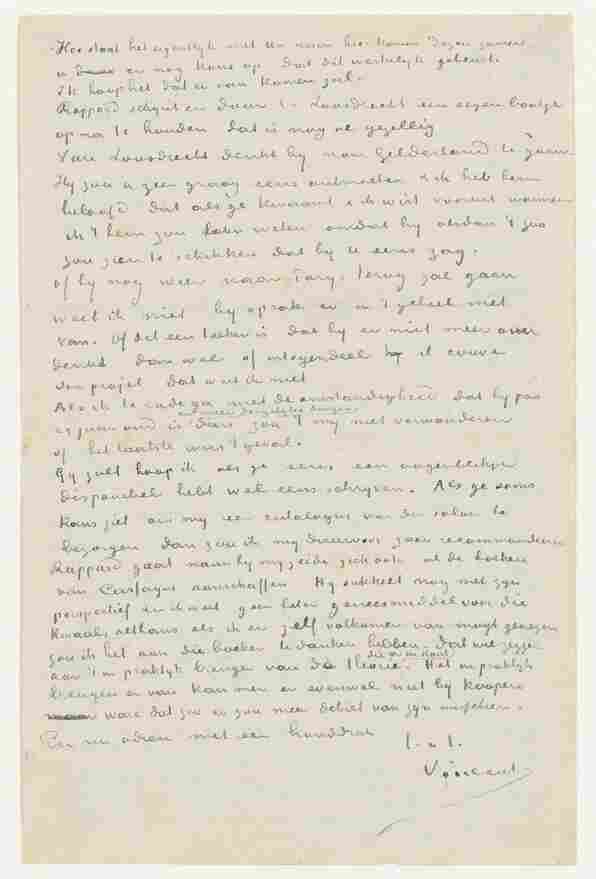 Hoe staat het eigentlyk met Uw naar hier komen dezen zomer
is er nog kans op dat dit werkelyk gebeurt.
Ik hoop het dat er van komen zal.
Rappard schynt en daar te Loosdrecht een eigen bootje
op na te houden dat is nog al gezellig
Van Loosdrecht denkt hy naar Gelderland te gaan
Hy zou U zeer graag eens ontmoeten & ik heb hem
beloofd dat als ge kwaamt & ik wist vooruit wanneer
ik 't hem zou laten weten omdat hy alsdan 't zou
zou zien te schikken dat hy U eens zag.
of hy nog weer naar Parys terug zal gaan
weet ik niet hy sprak er in 't geheel niet
van. Of dit een teeken is dat hy er niet meer over
denkt dan wel of integendeel il couve
son projet dat weet ik niet
Als ik te rade ga met de omstandigheid dat hy
in meer dergelyke dingen
is zou 't my niet verwonderen
of het laatste was 't geval.
Gy zult hoop ik als ge eens een oogenblikje
disponibel hebt wel eens schryven. Als ge soms
kans ziet om my een catalogus van den salon te
bezorgen dan zou ik my daarvoor zeer recommanderen
Rappard gaat naar hy my zeide zich ook al de boeken
van Cassagne aanschaffen Hy sukkelt nog met zyn
perspectief en ik weet geen beter geneesmiddel voor die
kwaal, althans als ik er zelf volkomen van mogt genezen
zou ik het aan die boeken te danken hebben. Dat wil zeggen
aan 't in praktyk brengen van de theorie
die er in staat.
Het in praktyk
brengen er van kan men er evenwel niet by koopen
ware dat zoo er zou meer debiet van zyn misschien.
En nu adieu met een handdruk
t. à t.
Vincent